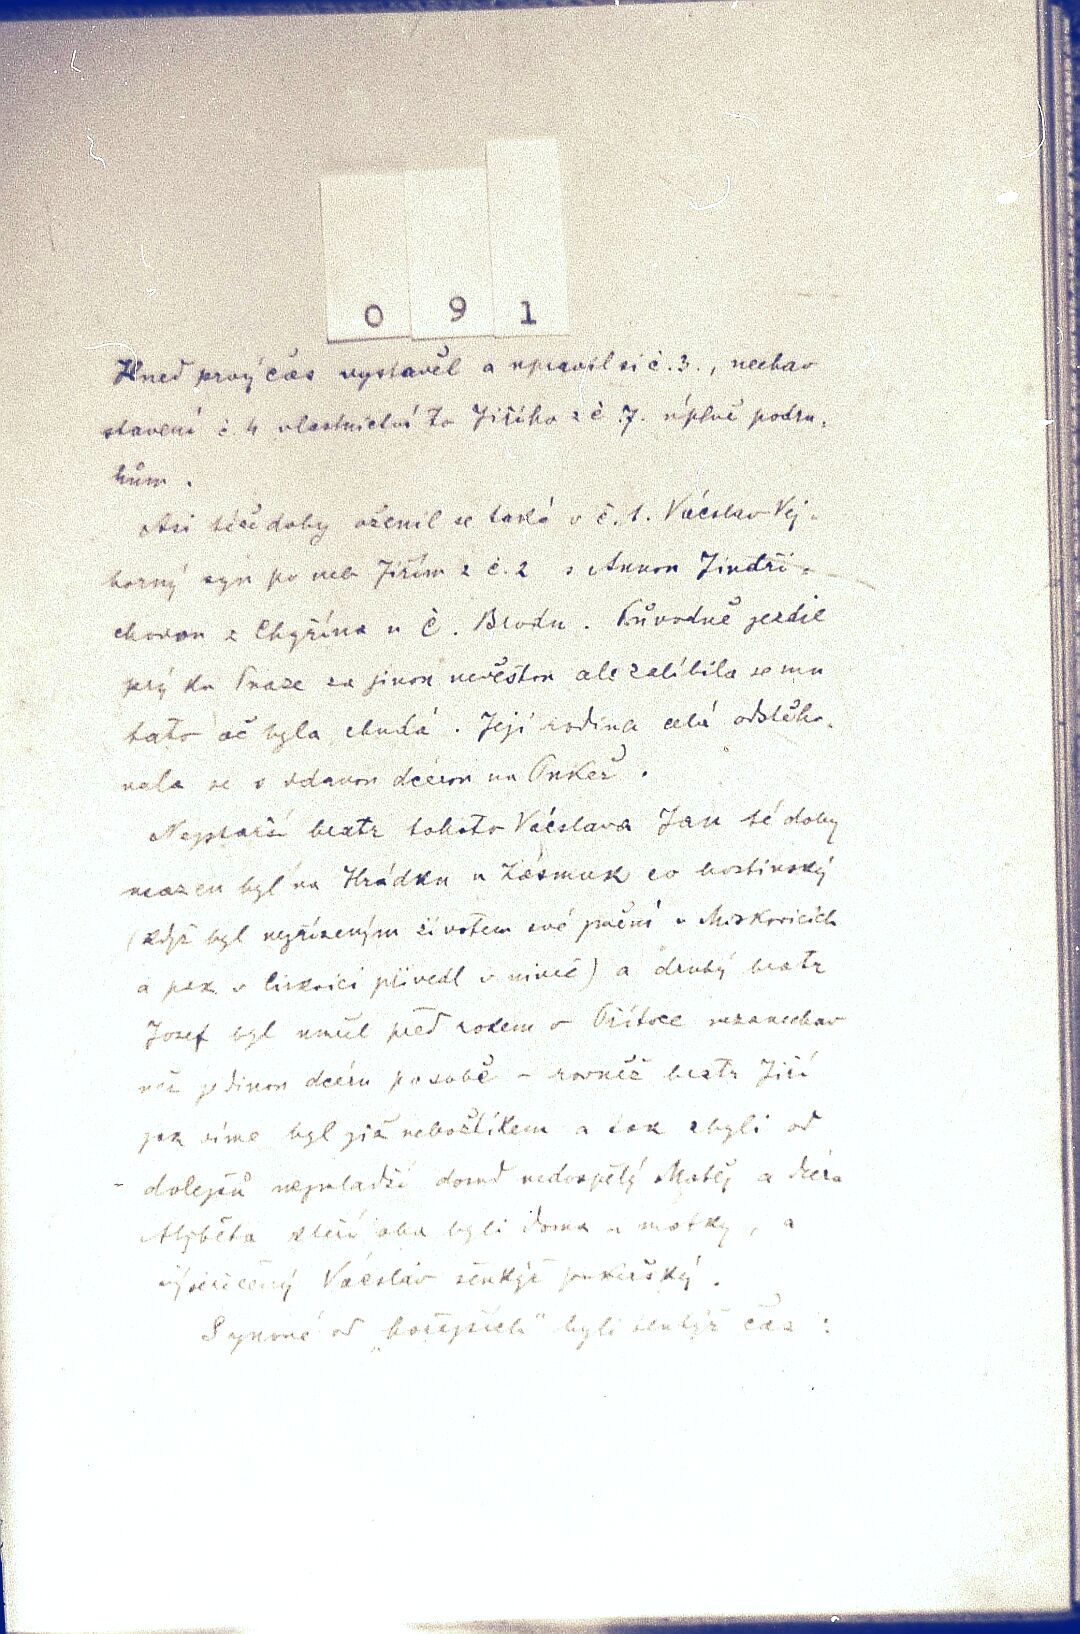 0 9 1
Hned prvý čas vystavěl a upravil si č. 3., nechav
stavení č. 4 vlastnictví to Jiřího z č. 7. úplně podru-
hům.
Asi téže doby oženil se také v č. 1. Václav Vej-
borný syn po neb. Jiřím z č. 2 s Annou Jindři-
chovou z Chyřína u Č. Brodu. Původně jezdil
prý ku Praze za jinou nevěstou ale zalíbila se mu
tato ač byla chudá. Její rodina celá odstěho-
vala se s vdavou dcerou na Punkeř.
Nejstarší bratr tohoto Václava Jan té doby
usazen byl na Hrádku u Zásmuk co hostinský
(když byl neřízeným životem své jmění v Miskovicích
a pak v Církvici přivedl v niveč) a druhý bratr
Josef byl umřel před rokem v Přítoce nezanechav
než jedinou dceru po sobě – rovněž bratr Jiří
jak víme byl již nebožtíkem a tak zbyli od
dolejšů nejmladší dosud nedospělý Matěj a dcera
Alžběta kteří oba byli doma u matky, a
výšeřečený Václav šenkýř punkeřský.
Synové od „hořejších" byli tentýž čas :